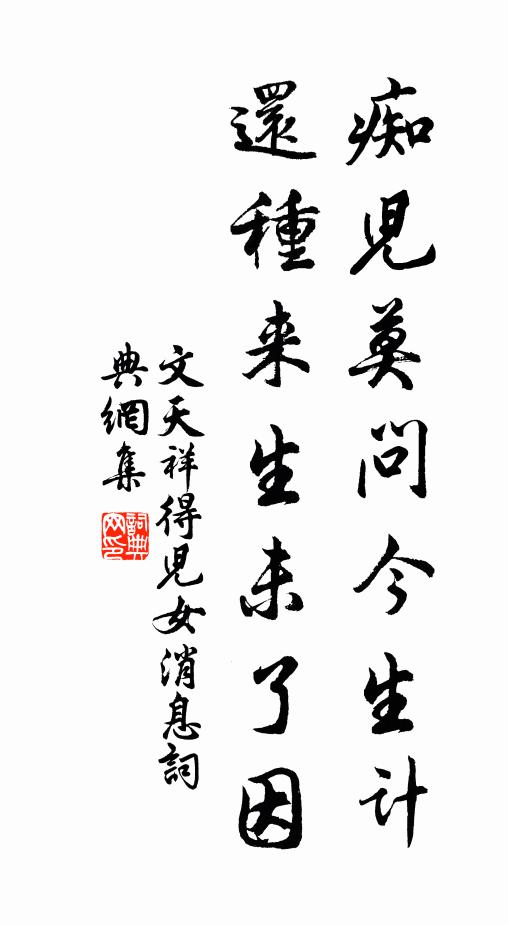 痴児莫問今生計
還種来生未了因
文天祥得児女消息詞
典網集
詞典網印